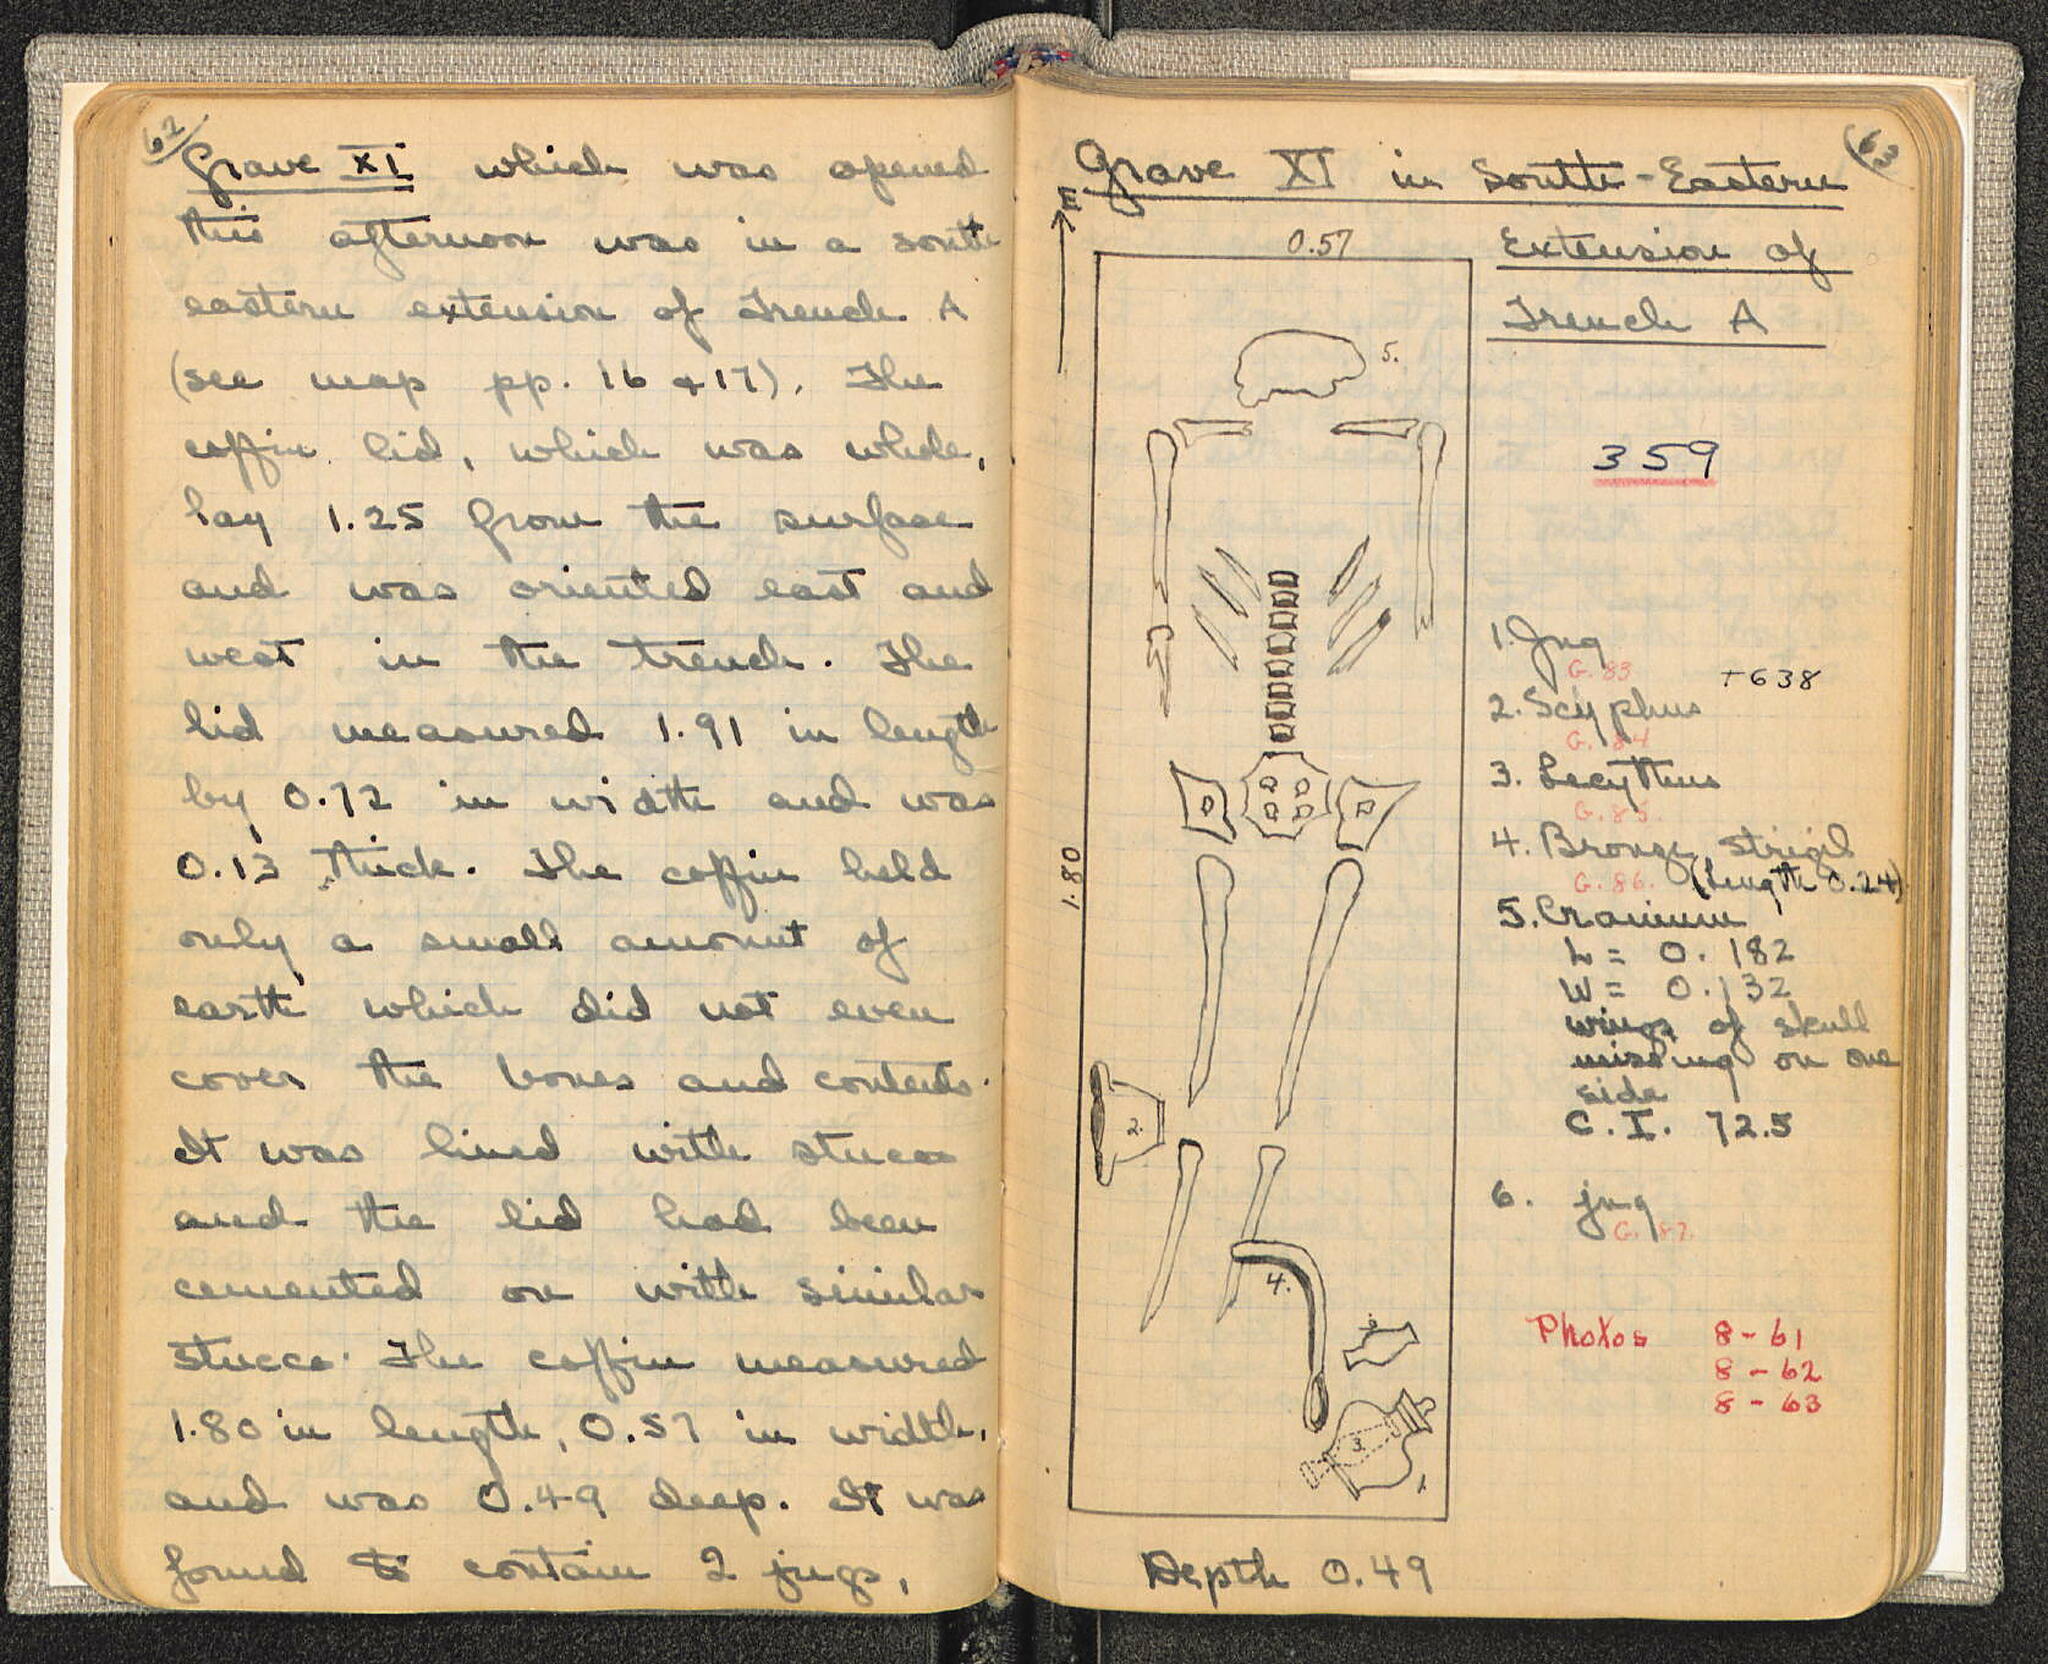 62
Grave XI which was opened
this afternoon was in a south
eastern extension of Trench A
(see map pp. 16 & 17). The
coffin lid, which was whole,
lay 1.25 from the surface
and was oriented east and
west in the trench. The
lid measured 1.91 in length
by 0.72 in width and was
0.13 thick. The coffin held
only a small amount of
earth which did not even
cover the bones and contents.
It was lined with stucco
and the lid had been
cemented on with similar
stucco. The coffin measured
1.80 in length, 0.57 in width,
and was 0.49 deep. It was
found to contain 2 jugs,
63
Grave XI in South-Eastern
Extension of
Trench A
E
0.57
5.
359
1. Jug
G. 83
T638
2. Scyphus
G. 84
3. Lecythus
G. 85.
4. Bronze strigil
G. 86. (length 0.24)
5. Cranium
L = 0.182
W = 0.132
wings of skull
missing on one
side
C.I. 72.5
6. jug
G. 87.
Photos 8-61
8-62
8-63
1.80
2.
4.
6
3.
1
Depth 0.49